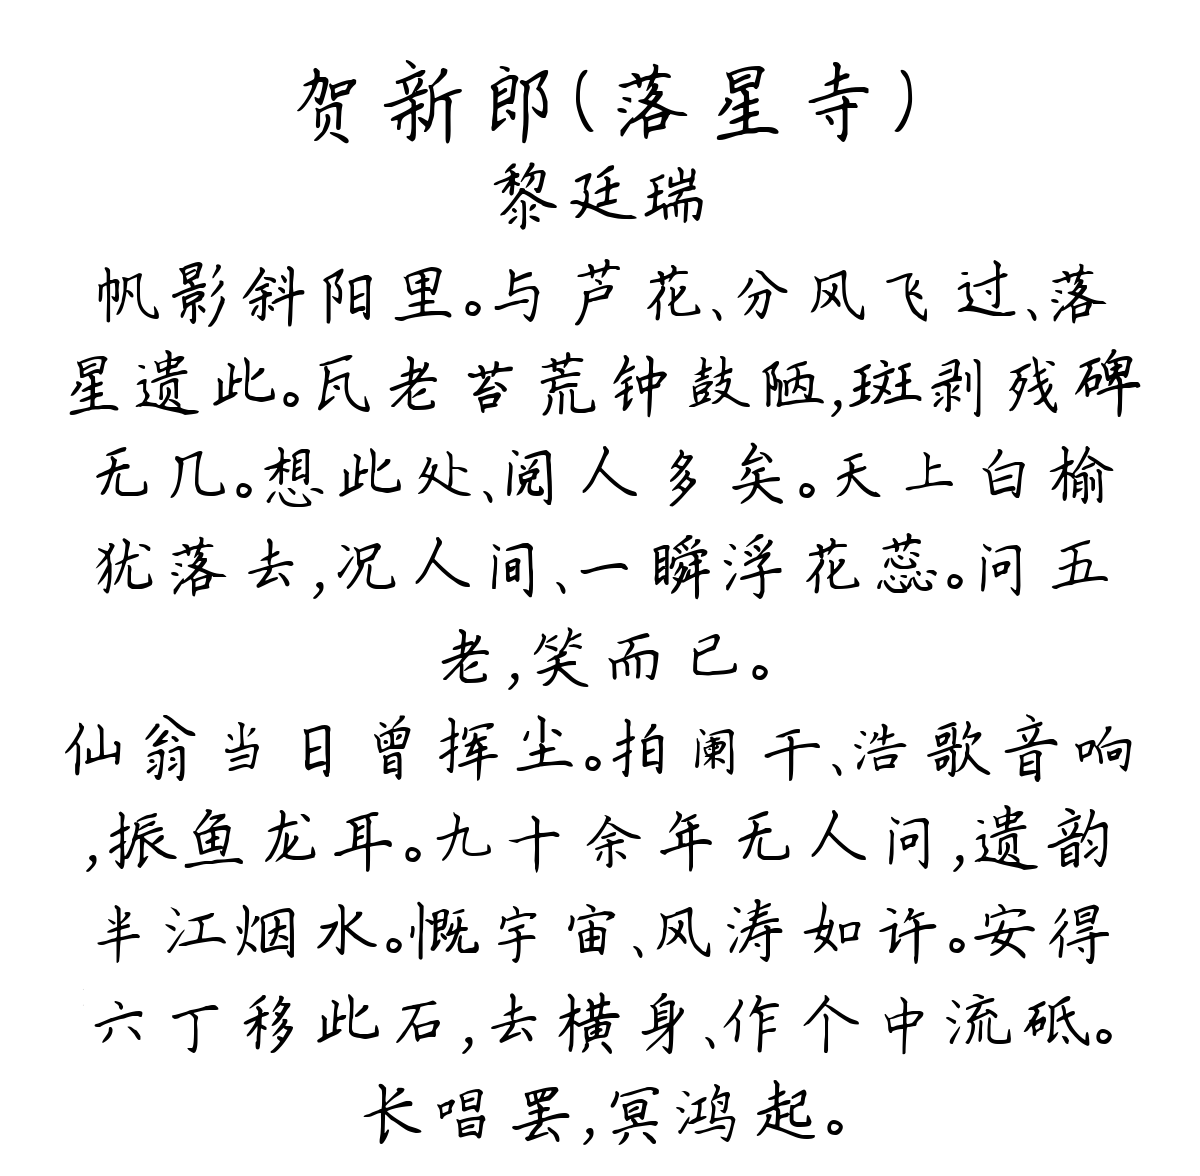 贺新郎(落星寺)
黎廷瑞
帆影斜阳里。与芦花、分风飞过、落
星遗此。瓦老苔荒钟鼓陋,斑剥残碑
无几。想此处、阅人多矣。天上白榆
犹落去,况人间、一瞬浮花蕊。问五
老,笑而已。
仙翁当日曾挥尘。拍阑干、浩歌音响
,振鱼龙耳。九十余年无人问,遗韵
半江烟水。慨宇宙、风涛如许。安得
六丁移此石,去横身、作个中流砥。
长唱罢,冥鸿起。